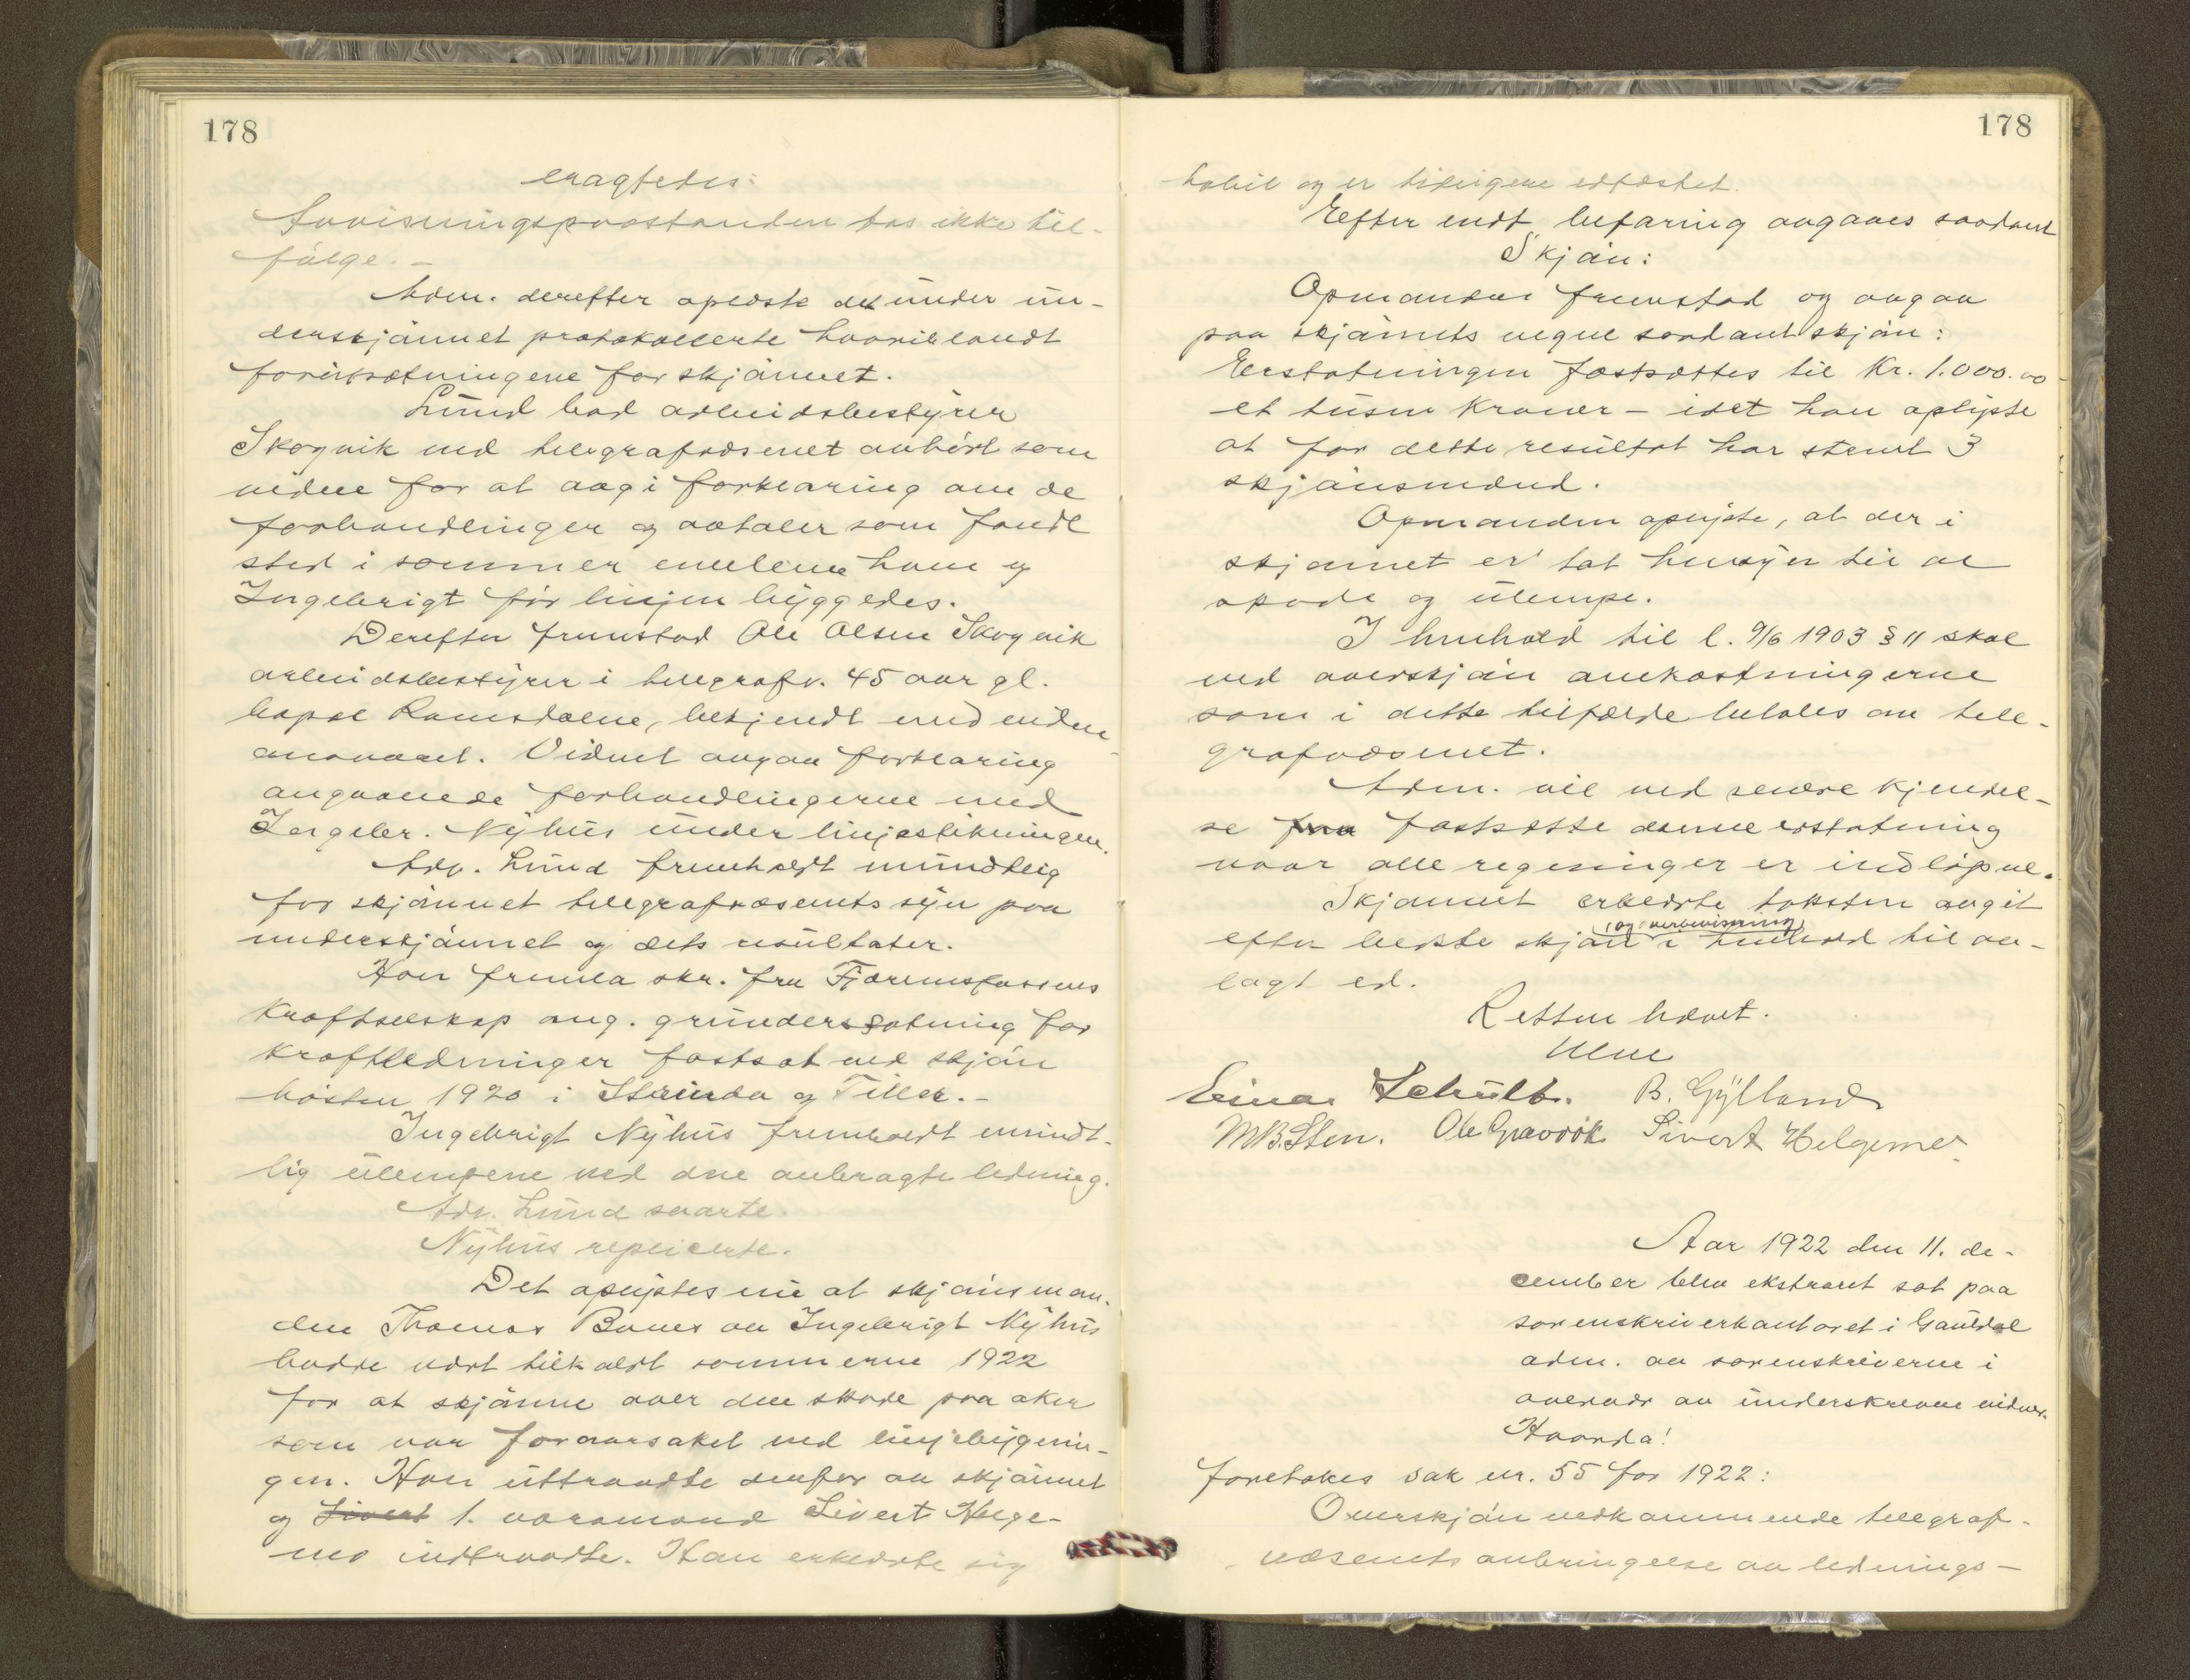 178
eragtedes:
Avvisningspaastanden tas ikke til-
følge. -
Adm. derefter oplæste det under un-
derskjønnet protokollerte hvoriblandt
forutsætningene for skjønnet.
Lund bad arbeidsbestyrer
Skogvik ved telegrafvæsenet avhørt som
vidne for at avgi forklaring om de
forhandlinger og avtaler som fandt
sted i sommer mellem ham og
Ingebrigt før linjen byggedes.
Derefter fremstod Ole Olsen Skogvik
arbeidsbestyrer i telegrafv. 45 aar gl.
bopæl Romsdalen, bekjendt med vidne-
ansvaret. Vidnet avgav forklaring
angaaende forhandlingerne med
Ingebr. Nyhus under linjestikningen.
Adv. Lund fremholdt mundtlig
for skjønnet telegrafvæsenets syn paa
underskjønnet og dets resultater.
Han fremla skr. fra Fjæremsfossens
Kraftselskap ang. grunderstatning for
kraftledninger fastsat ved skjøn
høsten 1920 i Strinda og Tiller. -
Ingebrigt Nyhus fremholdt mundt-
lig ulempene ved den anbragte ledning.
Adv. Lund svarte.
Nyhus replicerte.
Det oplystes nu at skjønsman-
den Thomas Bones av Ingebrigt Nyhus
hadde vært tilkaldt sommerne 1922
for at skjønne over den skade paa aker
som var foraarsaket ved linjebygnin-
gen. Han uttraadte derfor av skjønnet
og Sivert 1. varamand Sivert Helge-
mo indtraadte. Han erklærte sig
178
habil og er tidligere edfæstet.
Efter endt befaring avgaves saadant
Skjøn:
Opmanden fremstod og avgav
paa skjønnets vegne saadant skjøn:
Erstatningen fastsættes til Kr. 1.000.00
et tusen kroner - idet han oplyste
at for dette resultat har stemt 3
skjønsmænd.
Opmanden oplyste, at der i
skjønnet er tat hensyn til al
skade og ulempe.
I henhold til l. 9/6 1903 § 11 skal
ved overskjøn omkostningerne
som i dette tilfælde betales av tele-
grafvæsenet.
Adm. vil ved senere kjendel-
se fra fastsætte denne erstatning
naar alle regninger er indløpne.
Skjønnet erklærte taksten avgit
efter bedste skjøn i henhold til av-
og overbevisning
lagt ed.
Retten hævet.
Einar Schult. B. Gylland
M.B. Sten. Ole Gravråk Sivert Helgemo
Aar 1922 den 11. de-
cember blev ekstraret sat paa
sorenskriverkontoret i Gauldal
adm. av sorenskriverne i
overvær av underskrevne vidner.
Hvorda!
foretokes sak nr. 55 for 1922:
Overskjøn vedkommende telegraf-
væsenets anbringelse av lednings-